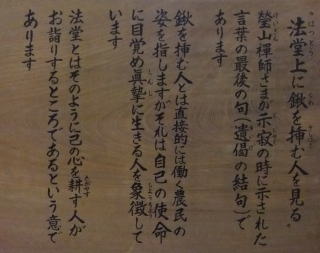 法堂上に鍬を挿む人を見る
瑩山禅師さまが示寂の時に示された
言葉の最後の句（遺偈の結句）で
あります
鍬を挿む人とは直接的には働く農民の
姿を指しますがそれは自己の使命
に目覚め真摯に生きる人を象徴して
います
法堂とはそのように己の心を耕す人が
お詣りするところであるという意で
あります